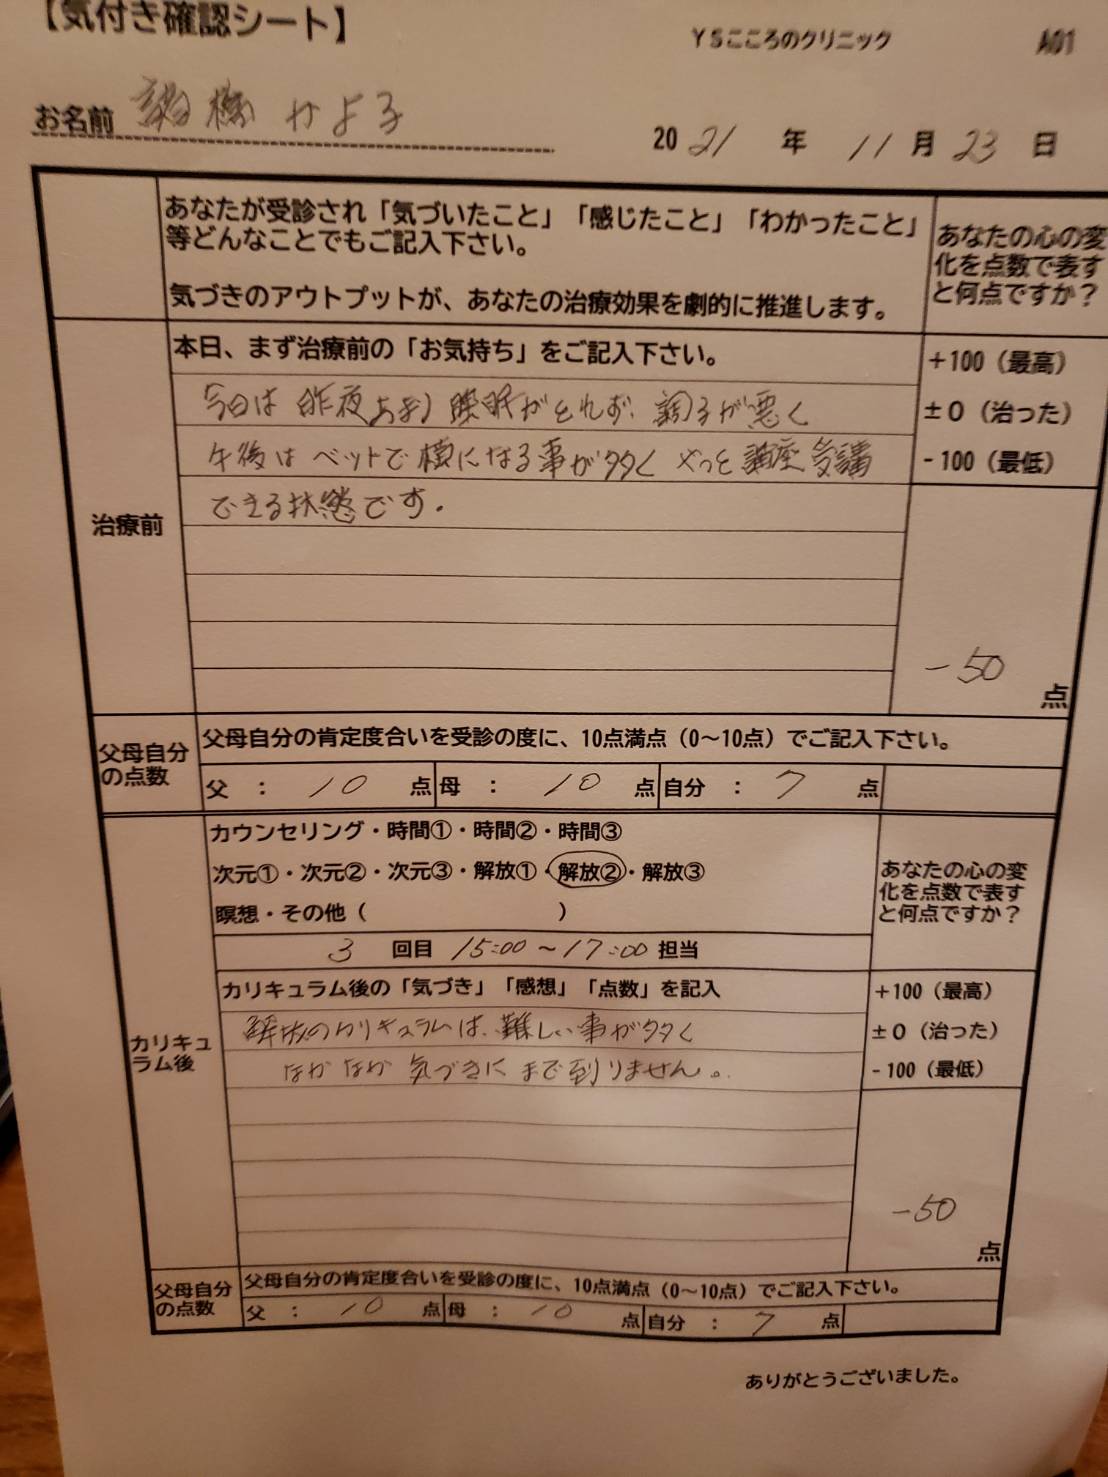 【気付き確認シート】
YSこころのクリニック A01
お名前 かよ子
2021年 11月 23日
あなたが受診され「気づいたこと」「感じたこと」「わかったこと」
等どんなことでもご記入下さい。
気づきのアウトプットが、あなたの治療効果を劇的に推進します。
あなたの心の変
化を点数で表す
と何点ですか？
治療前
本日、まず治療前の「お気持ち」をご記入下さい。
今日は昨夜あまり睡眠がとれず、調子が悪く
午後はベットで横になる事が多く やっと講座受講
できる状態です。
+100（最高）
±0（治った）
-100（最低）
-50
点
父母自分
の点数
父母自分の肯定度合いを受診の度に、10点満点（0～10点）でご記入下さい。
父 ： 10 点 母 ： 10 点 自分 ： 7 点
カリキュ
ラム後
カウンセリング・時間①・時間②・時間③
次元①・次元②・次元③・解放①・解放②・解放③
瞑想・その他（ ）
3 回目 15:00～17:00 担当
あなたの心の変
化を点数で表す
と何点ですか？
カリキュラム後の「気づき」「感想」「点数」を記入
解放のカリキュラムは、難しい事が多く
なかなか 気づきにまで到りません。
+100（最高）
±0（治った）
-100（最低）
-50
点
父母自分
の点数
父母自分の肯定度合いを受診の度に、10点満点（0～10点）でご記入下さい。
父 ： 10 点 母 ： 10 点 自分 ： 7 点
ありがとうございました。